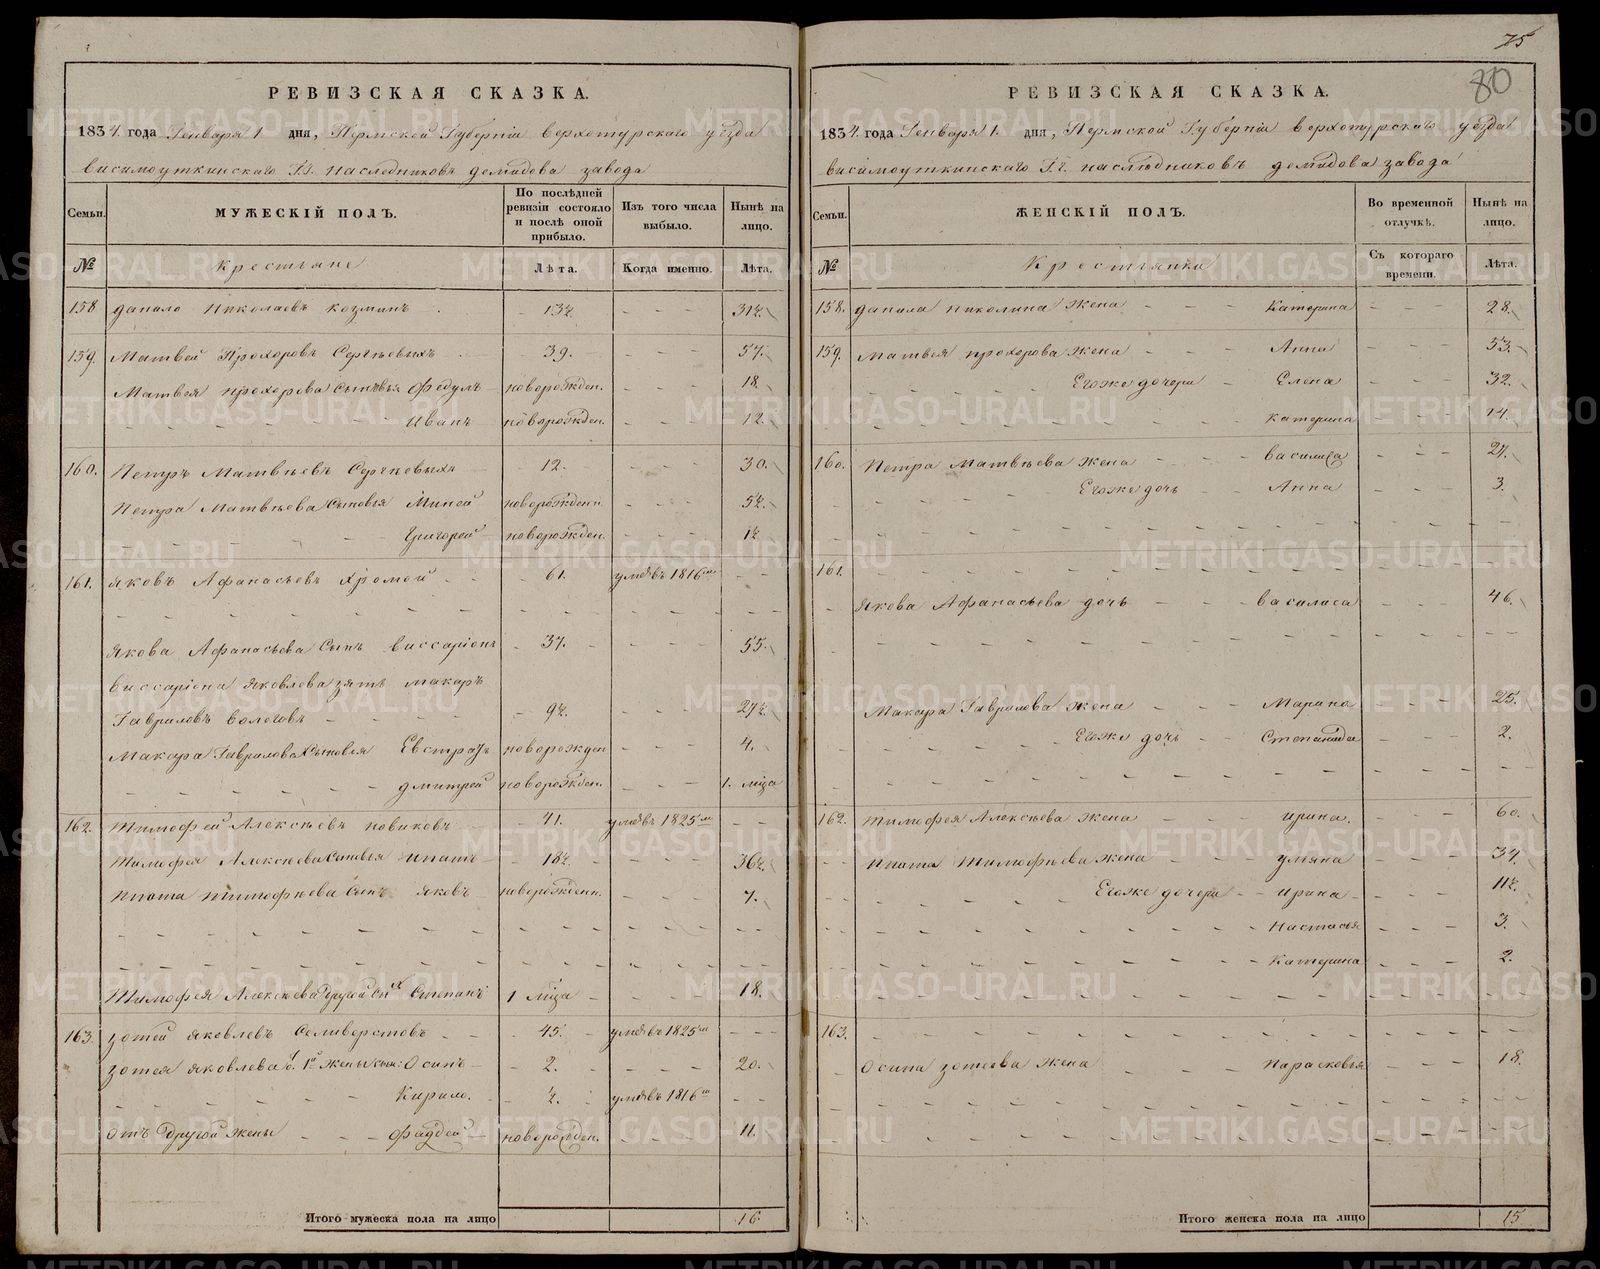 75
80
РЕВИЗСКАЯ СКАЗКА.
1834. года Генваря 1. дня, Пермской Губернiи верхотурскаго уезда
висимоуткинскаго Г.г. наследниковъ демидова завода
Семьи.
МУЖЕСКIЙ ПОЛЪ.
По послѣдней ревизiи состояло и послѣ оной прибыло.
Изъ того числа выбыло.
Нынѣ на лицо.
№
Крестьяне
Лѣта.
Когда именно.
Лѣта.
158 данило Николаевъ Козминъ 13½ 31½
159. Матвей Прохоровъ Сергѣевыхъ 39. 57.
Матвея прохорова сыновья Федулъ новорожден. 18
Иванъ новорожден. 12.
160. Петръ Матвѣевъ Сергѣевыхъ 12. 30.
Петра Матвѣева сыновья Миней новорожденн 5½
Григорей новорожден. 1½
161. Яковъ Афанасьевъ Хромой 61. умре въ 1816мъ
Якова Афанасьева сынъ виссарiонъ 37. 55.
виссарiона Яковлева зять макаръ
Гавриловъ вологовъ 9½ 27½
Макара Гаврилова сыновья Евстратъ новорожден 4.
дмитрей новорожден. 1. мѣсца
162. Тимофей Алексѣевъ новиковъ 41. умре въ 1825мъ
Тимофея Алексѣева сыновья ипатъ 18½ 36½
ипата тимофѣева сынъ яковъ новорожденн. 7.
Тимофея Алексѣева другой сынъ Степанъ 1 мѣсца 18.
163. зотей яковлевъ Селиверстовъ 45. умре въ 1825мъ
зотея яковлева 1й жены сынъ: Осипъ 2. 20.
Кирило. ½. умре въ 1816м
Отъ другой жены фаддей новорожден. 11.
Итого мужеска пола на лицо 16
РЕВИЗСКАЯ СКАЗКА.
1834. года Генваря 1. дня, Пермской Губернiи верхотурскаго уезда
висимоуткинскаго Г.г. наслѣдниковъ демидова завода
Семьи.
ЖЕНСКIЙ ПОЛЪ.
Во временной отлучкѣ.
Нынѣ на лицо.
№
Крестьянки
Съ котораго времени.
Лѣта.
158. данила николина жена Катерина 28.
159. матвея прохорова жена Анна 53.
Его же дочери Елена 32.
катерина 14.
160. Петра Матвѣева жена василиса 27.
Его же дочь Анна 3.
161.
Якова Афанасьева дочь василиса 46.
Макара Гаврилова жена Марина 25.
Его же дочь Степанида 2.
162. тимофея Алексѣева жена ирина. 60.
ипата Тимофѣева жена ульяна 34.
Его же дочери ирина 11½.
настасья 3.
Катерина 2.
163.
Осипа зотеева жена Парасковья 18.
Итого женска пола на лицо 15
METRIKI.GASO-URAL.RU